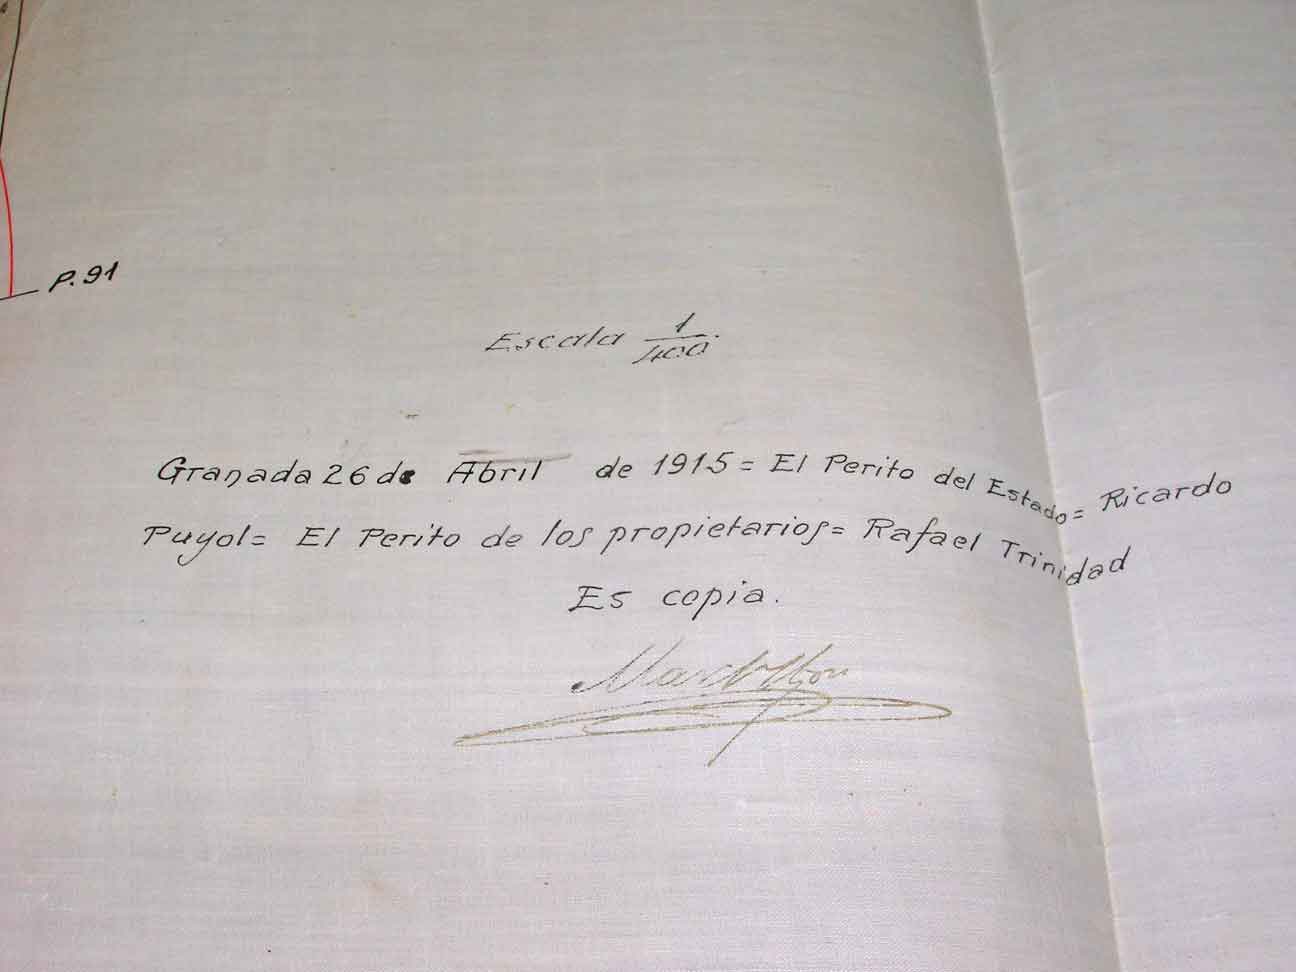 P. 91
Escala 1/400
Granada 26 de Abril de 1915 = El Perito del Estado = Ricardo
Puyol = El Perito de los propietarios = Rafael Trinidad
Es copia.